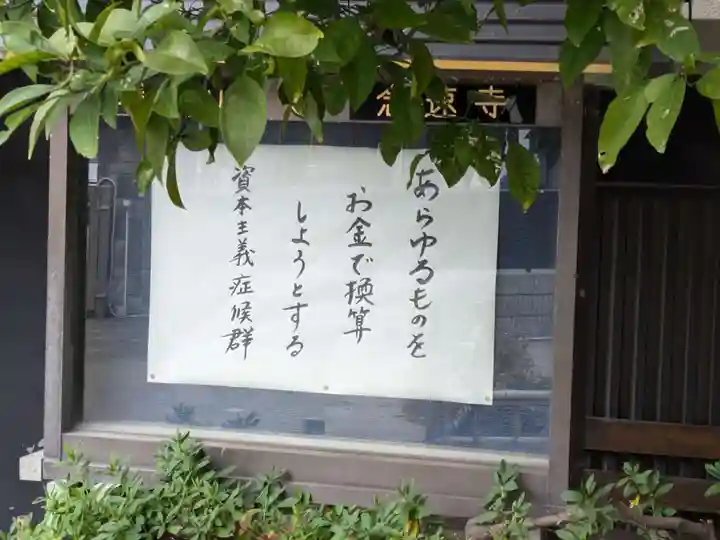 速寺
あらゆるものを
お金で換算
しようとする
資本主義症候群